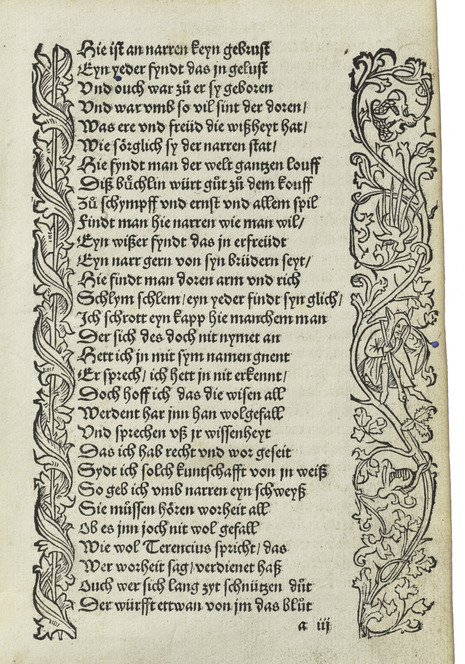 Hie ist an narren keyn gebrust
Eyn yeder fyndt das in gelust
Vnd ouch war zů er sy geboren
Vnd war vmb so vil sint der doren/
Was ere vnd freüd die wißheyt hat/
Wie sörglich sy der narren stat/
Hie fyndt man der welt gantzen louff
Diß büchlin würt gůt zů dem kouff
Zů schympff vnd ernst vnd allem spil
Findt man hie narren wie man wil/
Eyn wißer fyndt das in erfreüdt
Eyn narr gern von syn brüdern seyt/
Hie findt man doren arm vnd rich
Schlym schlem/ eyn yeder findt syn glich/
Jch schrott eyn kapp hie manchem man
Der sich des doch nit nymet an
Hett ich in mit sym namen gnent
Er sprech/ ich hett in nit erkennt/
Doch hoff ich das die wisen all
Werdent har jnn han wolgefall
Vnd sprechen vß jr wissenheyt
Das ich hab recht vnd wor geseit
Sydt ich solch kuntschafft von jn weiß
So geb ich vmb narren eyn schweyß
Sie müssen hören worheit all
Ob es jnn joch nit wol gefall
Wie wol Terencius spricht/ das
Wer worheit sag/ verdienet haß
Ouch wer sich lang zyt schnützen důt
Der würfft ettwan von jm das blůt
a iii